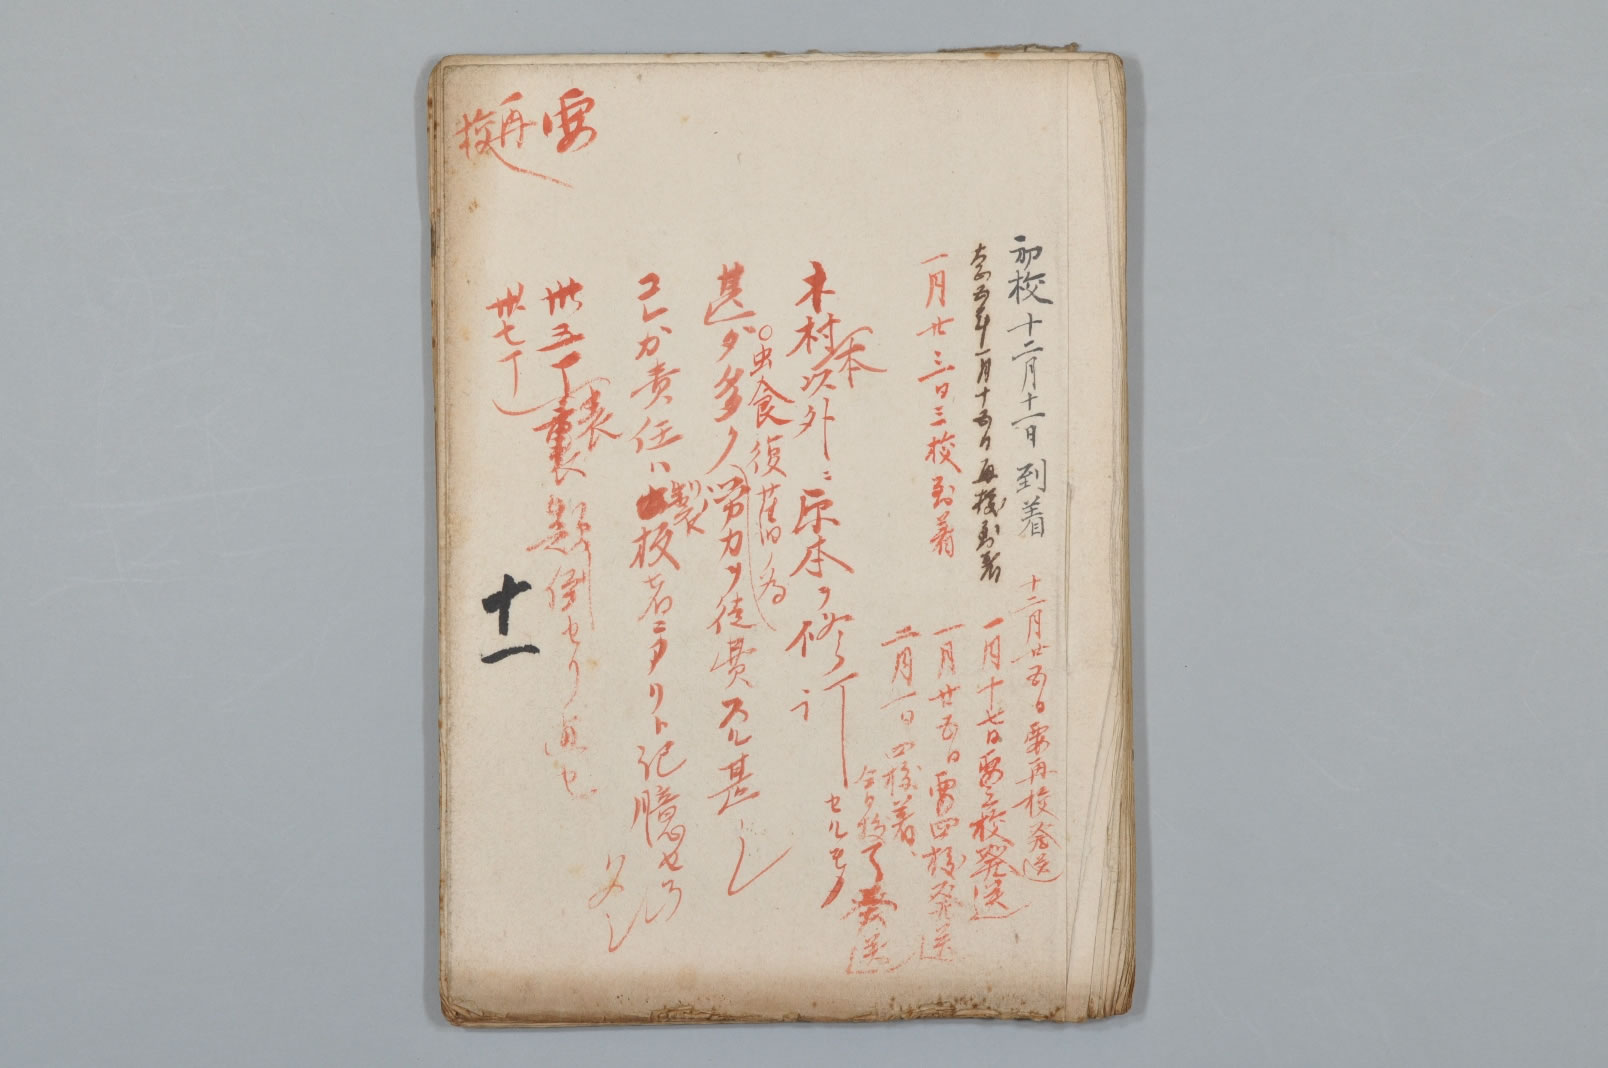 初校十二月十一日到着
十二月廿五日要再校発送
大正五年一月十五日再校到着
一月十七日要三校発送
一月廿三日三校到着
一月廿五日要四校発送
二月一日四校着、
今日校了発送
木村本以外ニ原本ヲ修訂
セルモノ
虫食復旧ノ為
甚ダ多ク労力ヲ徒費スル甚シ
コレガ責任ハ製板者ニアリト記臆セラ
リタシ
卅五丁表
卅七丁
顛倒セリ
要再校
十一